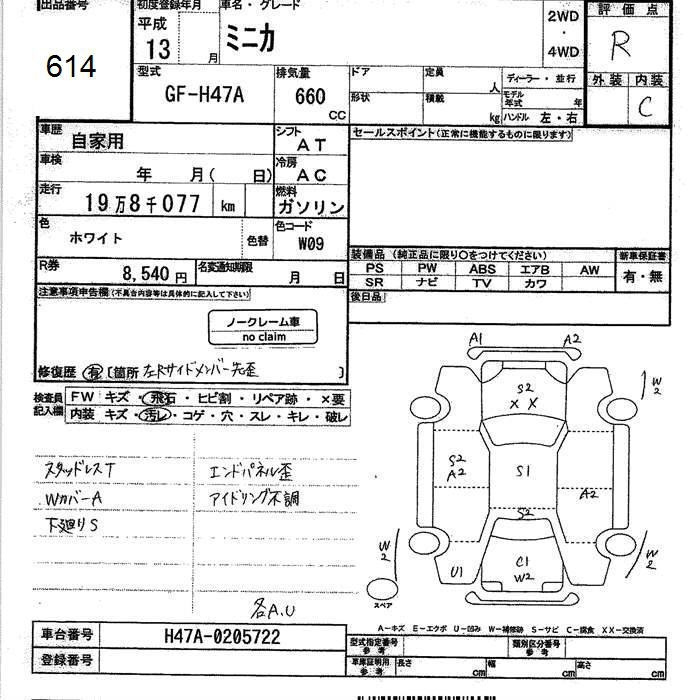 出品番号
614
初度登録年月
平成
13 月
車名・グレード
ミニカ
2WD
・
4WD
評価点
R
外装 内装
C
型式
GF-H47A
排気量
660
CC
ドア
定員
人
形状
積載
kg
ディーラー・並行
モデル
年式 年
ハンドル 左・右
車歴
自家用
シフト
AT
セールスポイント(正常に機能するものに限ります)
車検
年 月( 日)
冷房
AC
走行
19万8千077 km
燃料
ガソリン
色
ホワイト
色替
色コード
W09
装備品 (純正品に限り○をつけてください)
新車保証書
PS PW ABS エアB AW
SR ナビ TV カワ
有・無
R券
8,540 円
名変通知期限
月 日
後日品
注意事項申告欄(不具合内容等は具体的に記入して下さい)
ノークレーム車
no claim
修復歴 有 〔箇所 左Rサイドメンバー先歪 〕
検査員
記入欄
FW キズ・飛石・ヒビ割・リペア跡・×要
内装 キズ・汚レ・コゲ・穴・スレ・キレ・破レ
スタッドレスT
エンドパネル歪
WカバーA
アイドリング不調
下廻りS
各A.U
A1
A2
S2
X X
W2
S2
A2
S1
A2
S2
W2
U1
C1
W2
W2
スペア
A-キズ E-エクボ U-凹み W-補修跡 S-サビ C-腐食 XX-交換済
車台番号
H47A-0205722
型式指定番号
参考
類別区分番号
参考
登録番号
車庫証明用
参考
長さ cm
幅 cm
高さ cm